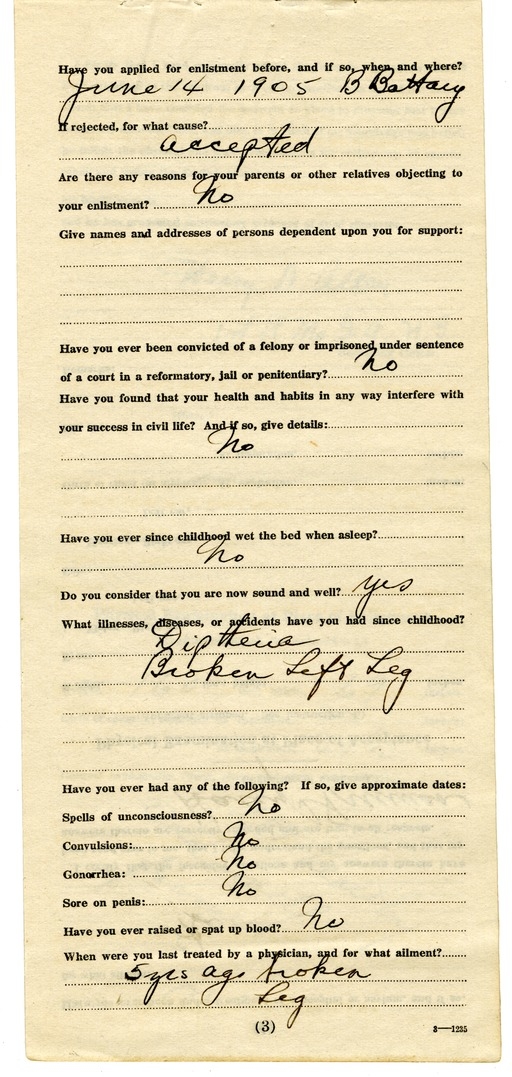 Have you applied for enlistment before, and if so, when and where?
June 14 1905 B Battery
If rejected, for what cause?
accepted
Are there any reasons for your parents or other relatives objecting to
your enlistment? No
Give names and addresses of persons dependent upon you for support:
Have you ever been convicted of a felony or imprisoned under sentence
of a court in a reformatory, jail or penitentiary? No
Have you found that your health and habits in any way interfere with
your success in civil life? And if so, give details:
No
Have you ever since childhood wet the bed when asleep?
No
Do you consider that you are now sound and well? yes
What illnesses, diseases, or accidents have you had since childhood?
Diptheria
Broken Left Leg
Have you ever had any of the following? If so, give approximate dates:
Spells of unconsciousness? No
Convulsions: No
Gonorrhea: No
Sore on penis: No
Have you ever raised or spat up blood? No
When were you last treated by a physician, and for what ailment?
5 yrs ago broken
Leg
(3)
3—1235